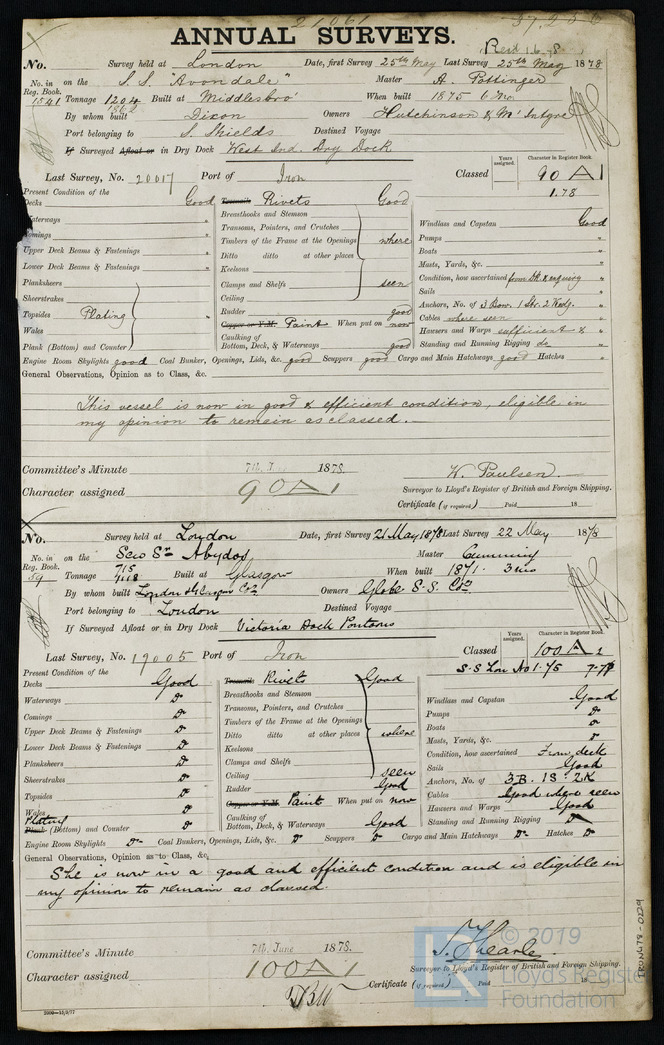 21061
ANNUAL SURVEYS.
Recd 1.6.78
No. Survey held at London Date, first Survey 25th May Last Survey 25th May 1878
No. in on the S.S. "Avondale" Master A. Pottinger
Reg. Book.
1541 Tonnage 1204 Built at Middlesbro' When built 1875 6 mo
1862
By whom built Dixon Owners Hutchinson & McIntyre
Port belonging to S. Shields Destined Voyage
If Surveyed Afloat or in Dry Dock West Ind. Dry Dock
Years assigned. Character in Register Book
Last Survey, No. 20017 Port of Iron Classed 90 A 1
1.78
Present Condition of the
Decks Good Treenails Rivets Good
Waterways " Breasthooks and Stemson
Comings " Transoms, Pointers, and Crutches
Upper Deck Beams & Fastenings " Timbers of the Frame at the Openings where
Lower Deck Beams & Fastenings " Ditto ditto at other places
Planksheers Keelsons
Sheerstrakes Clamps and Shelfs seen
Topsides Plating Ceiling
Wales Rudder good
Plank (Bottom) and Counter Copper or Y.M. Paint When put on now
Caulking of
Bottom, Deck, & Waterways good
Windlass and Capstan Good
Pumps "
Boats "
Masts, Yards, &c. "
Condition, how ascertained from dk & enquiry
Sails "
Anchors, No. of 3 Bow. 1 Str. 2 Kedg.
Cables where seen "
Hawsers and Warps sufficient & "
Standing and Running Rigging do "
Engine Room Skylights good Coal Bunker, Openings, Lids, &c. good Scuppers good Cargo and Main Hatchways good Hatches "
General Observations, Opinion as to Class, &c.
This vessel is now in good & efficient condition, eligible in
my opinion to remain as classed.
Committee's Minute 7th June 1878. W. Paulsen
Character assigned 90 A 1 Surveyor to Lloyd's Register of British and Foreign Shipping.
Certificate (if required) Paid 18
No. Survey held at London Date, first Survey 21 May 1878 Last Survey 22 May 1878
No. in on the Scw Sr Abydos Master Cumming
Reg. Book. 715
59 Tonnage 1118 Built at Glasgow When built 1871. 3 mo
By whom built London & Glasgow Coy Owners Globe S.S. Coy
Port belonging to London Destined Voyage
If Surveyed Afloat or in Dry Dock Victoria Dock Pontoons
Years assigned. Character in Register Book.
Last Survey, No. 19005 Port of Iron Classed 100 A 1
S.S Lon No 1-75 7-77
Present Condition of the
Decks Good Treenails Rivets Good
Waterways Do Breasthooks and Stemson
Comings Do Transoms, Pointers, and Crutches
Upper Deck Beams & Fastenings Do Timbers of the Frame at the Openings
Lower Deck Beams & Fastenings Do Ditto ditto at other places where
Planksheers Do Keelsons
Sheerstrakes Do Clamps and Shelfs
Topsides Do Ceiling seen
Wales Do Rudder Good
Plating
Plank (Bottom) and Counter Do Copper or Y.M. Paint When put on now
Caulking of
Bottom, Deck, & Waterways Good
Windlass and Capstan Good
Pumps Do
Boats Do
Masts, Yards, &c. Do
Condition, how ascertained From deck
Sails Good
Anchors, No. of 3B. 1S. 2K
Cables Good where seen
Hawsers and Warps Good
Standing and Running Rigging Do
Engine Room Skylights Do Coal Bunkers, Openings, Lids, &c. Do Scuppers Do Cargo and Main Hatchways Do Hatches Do
General Observations, Opinion as to Class, &c.
She is now in a good and efficient condition and is eligible in
my opinion to remain as classed.
Committee's Minute 7th June 1878. S. Thearle
Character assigned 100 A 1 Surveyor to Lloyd's Register of British and Foreign Shipping.
Certificate (if required) Paid 18
IRON678-0229
© 2019
Lloyd's Register
Foundation